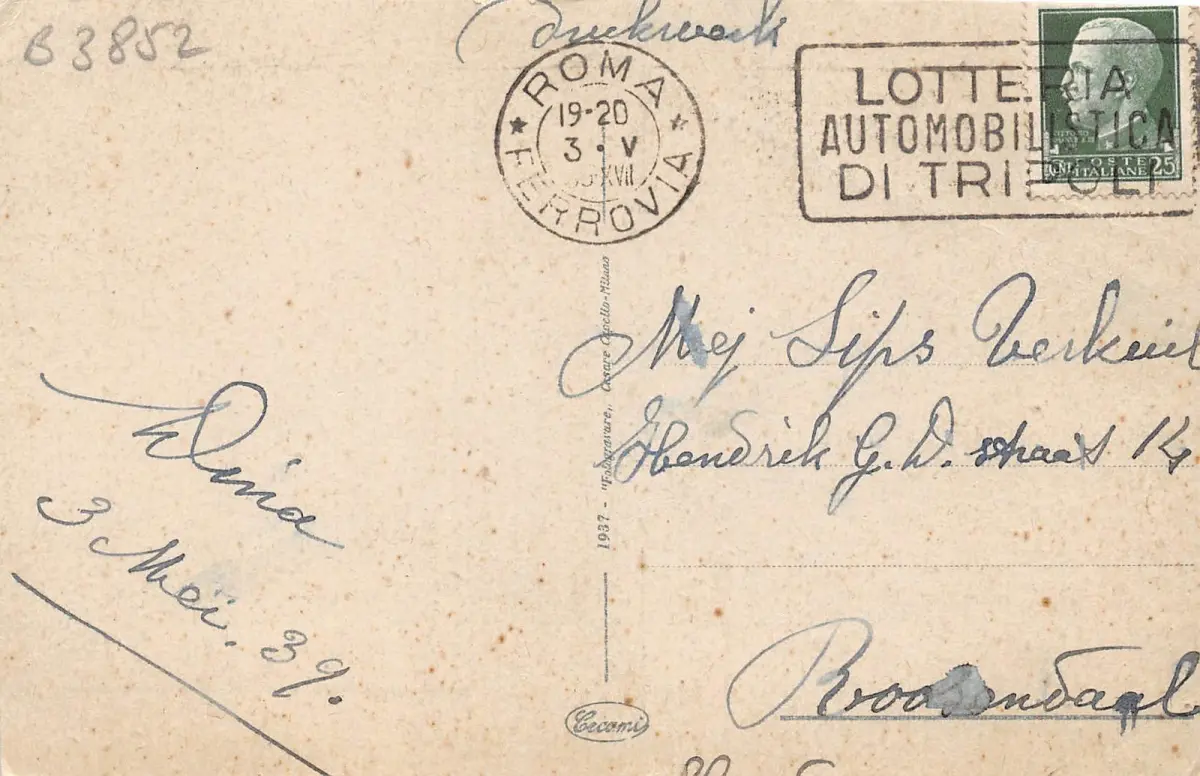 B 3852
Drukwerk
ROMA
19-20
3 · V
XVII
FERROVIA
LOTTERIA
AUTOMOBILISTICA
DI TRIPOLI
POSTE
ITALIANE 25
Mej Sips Verkuil
Hendrik G. D. straat 14
Roosendaal
Dina
3 Mei. 39.
1937 - "Fotogravure„ Cesare Capello-Milano
Cecami